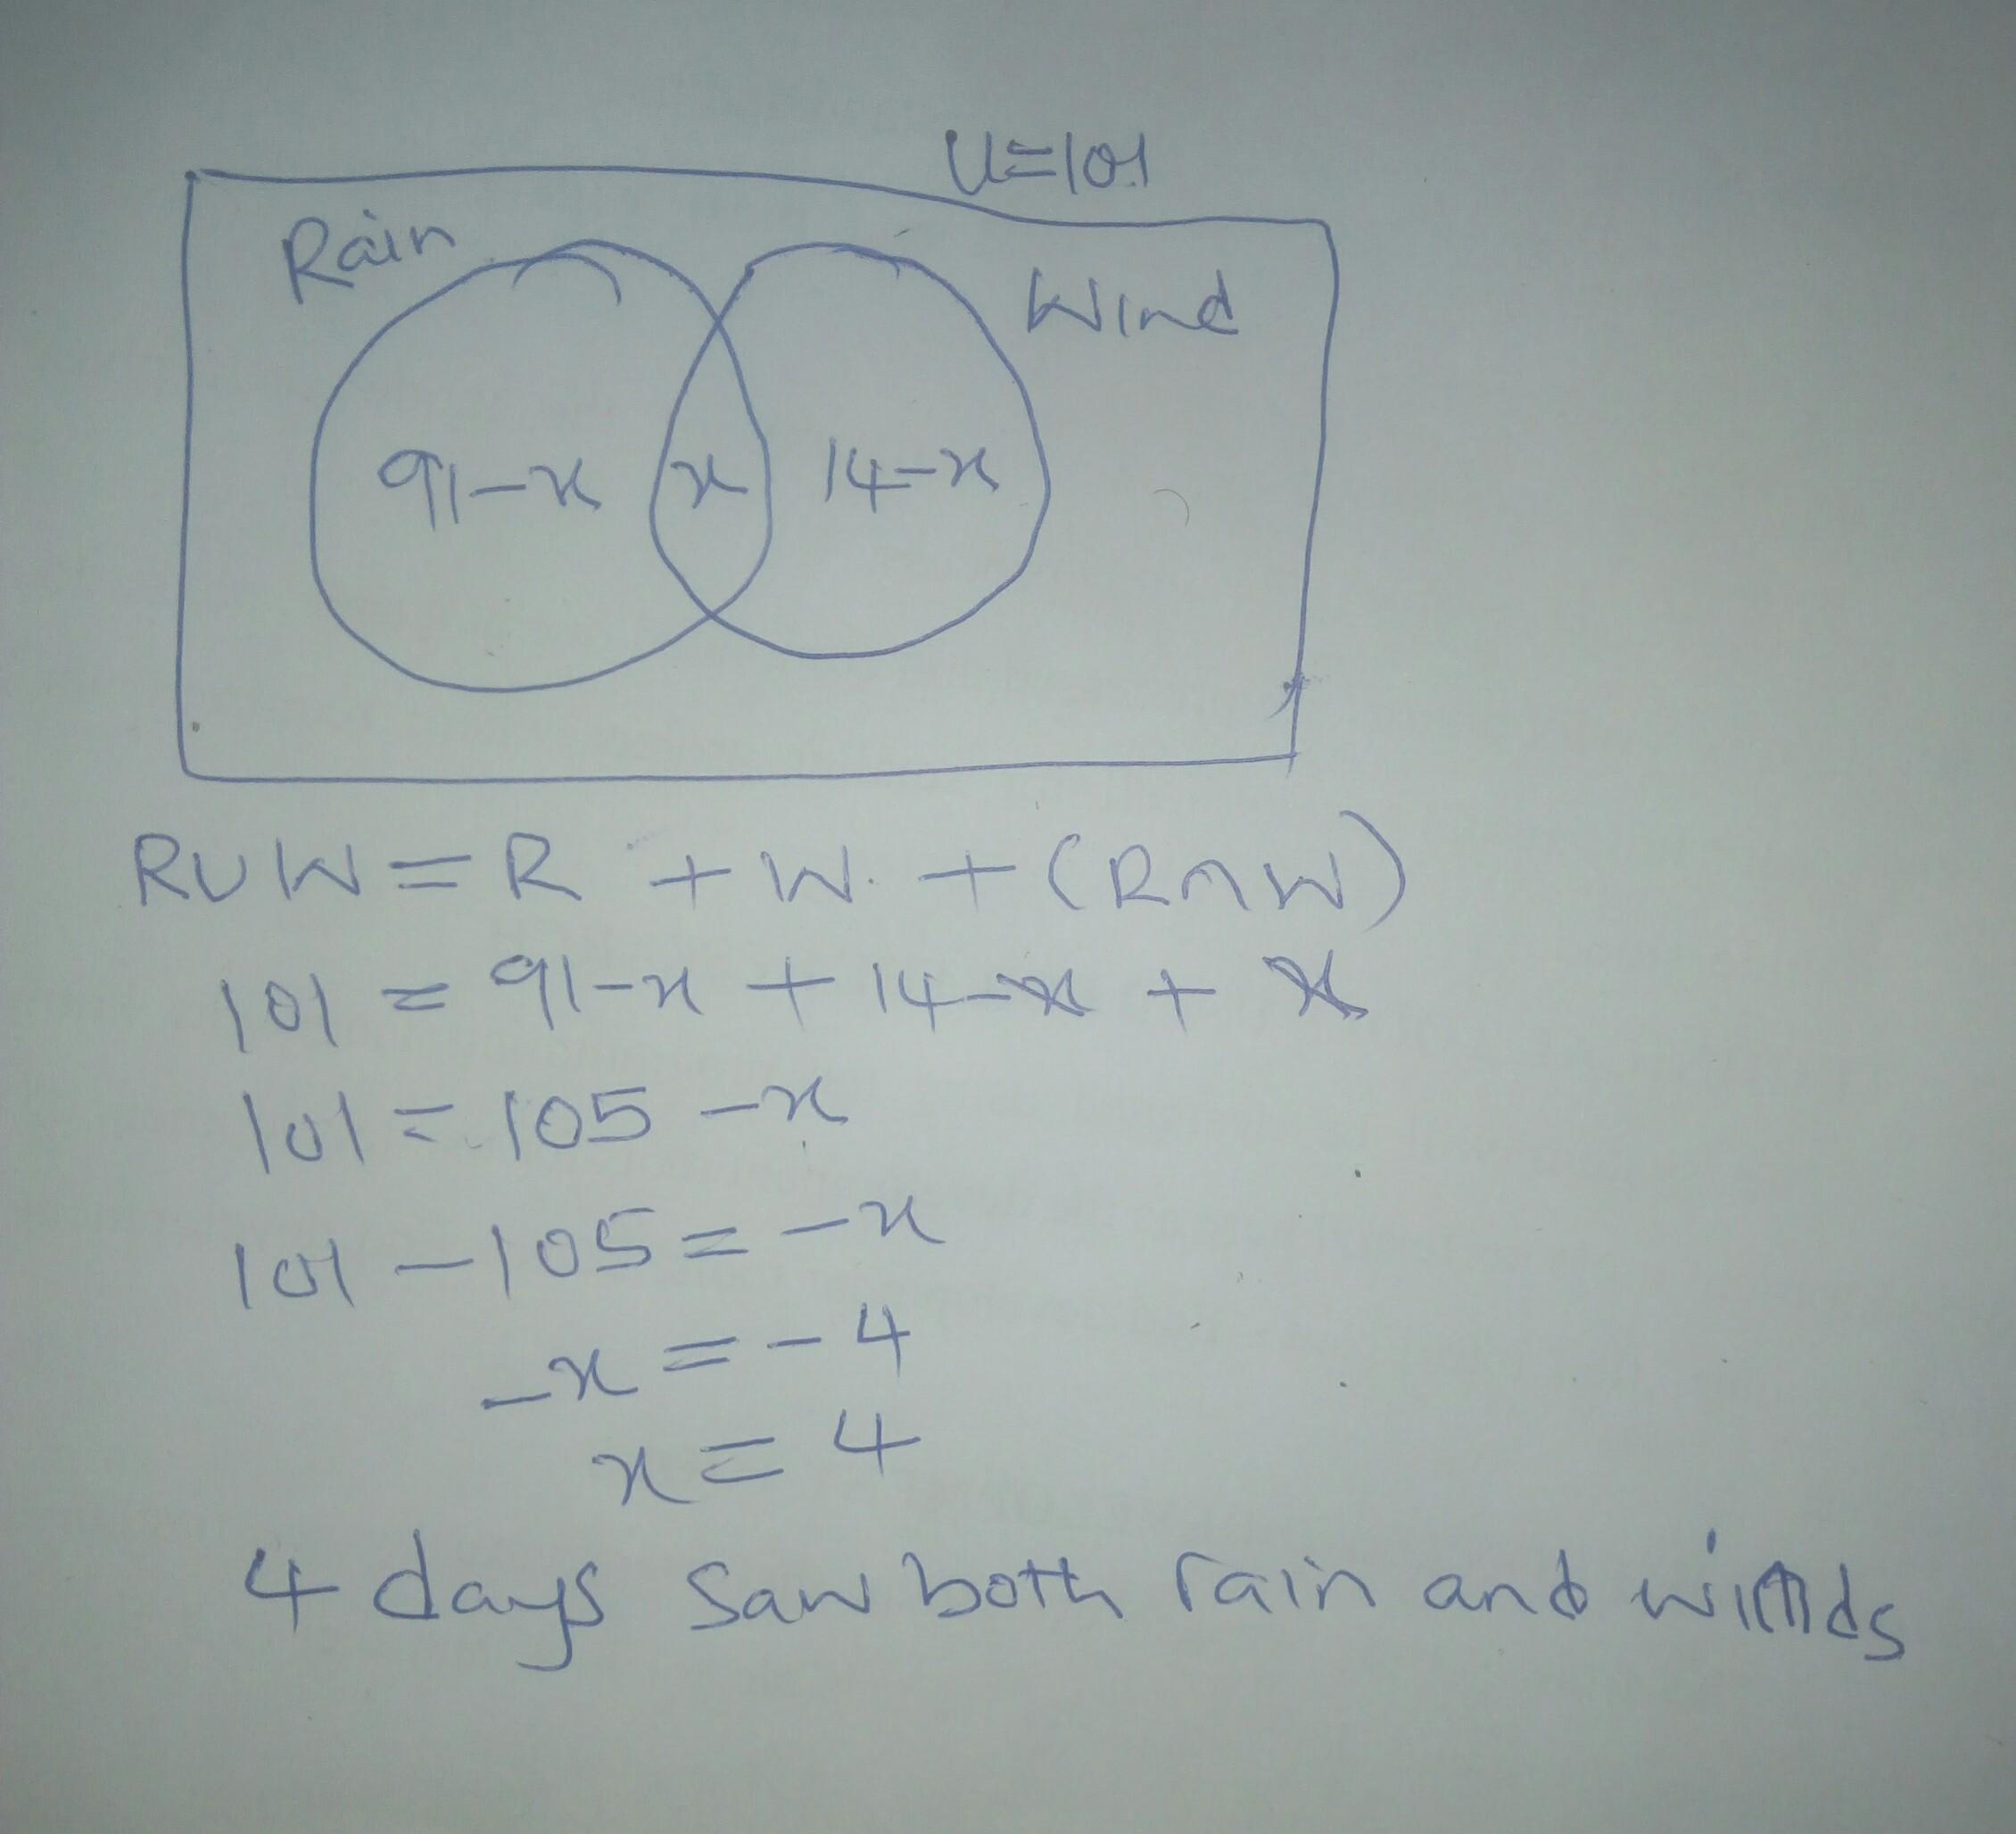 U=101
Rain
Wind
91-x x 14-x
RUW=R + W. + (R∩W)
101 = 91-x + 14-x + x
101 = 105 -x
101 - 105 = -x
-x = -4
x = 4
4 days saw both rain and winds